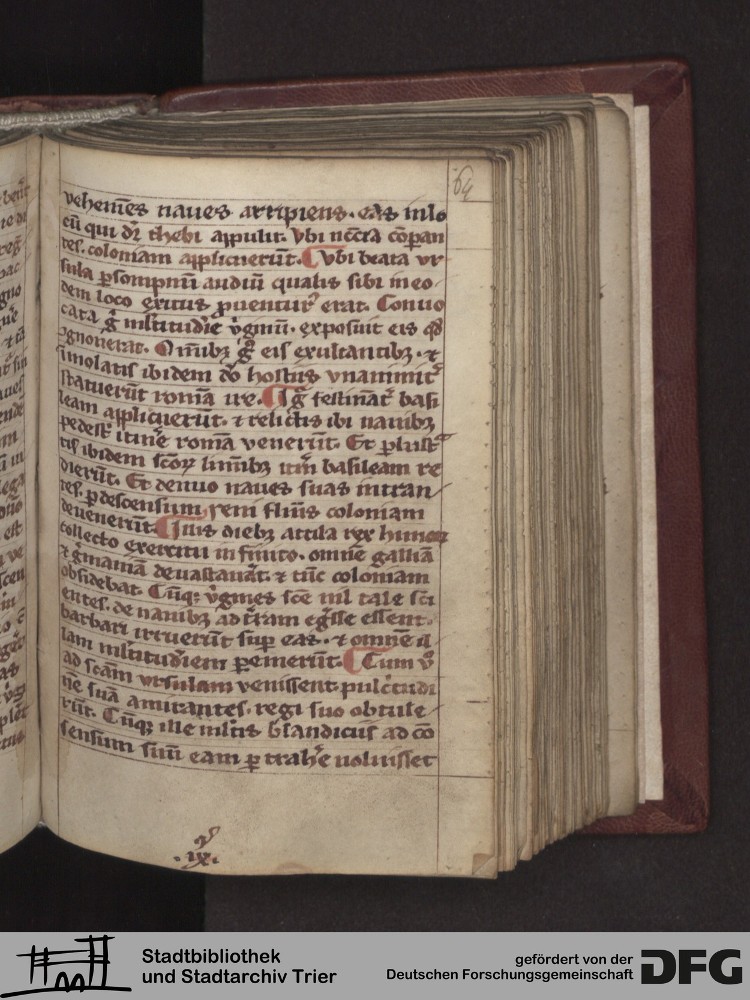 64
vehemēs naues arripiens. eas in lo
cū qui dr̄ thebi appulit. Vbi nccīa cōpan
tes. coloniam applicuerūt. Vbi beata vr
sula ꝑ sompnū audiuī qualis sibi in eo
dem loco exitus ꝓuentur᷒ erat. Conuo
cata gͥ mltitudīe v̓ginū. exposuit eis qd̓
ꝯgnouerat. Omībꝫ gͥ eis exultantibꝫ. ⁊
īmolatis ibidem dō hostiis vnanimit̓
statuerūt romā ire. Igͥ festinat̄ basi
leam applicuerūt. ⁊ relictis ibi nauibꝫ
pedest̓ itine̓ romā venerūt. Et ꝑlust̓
tis ibidem scōꝝ liminibꝫ itm̄ basileam re
dierūt. Et denuo naues suas intran
tes. ꝑ descensum reni fluuīs coloniam
deuenerūt. Illis diebꝫ attila rex hunoꝝ
collecto exercitu infinito. omnē galliā
⁊ g̓maniā deuastauāt. ⁊ tūc coloniam
obsidebat. Cūqꝫ v̓gines scē nil tale sci
entes. de nauibꝫ ad t̓ram eg̓sse essent.
barbari irruerūt suꝑ eas. ⁊ omnē il
lam mltitudiem ꝑemerūt. Cum v̓
ad scām vrsulam venissent pulcͥtudi
nē suā amirantes. regi suo obtule
rūt. Cūqꝫ ille mltis blandiciis ad cō
sensum suū eam ꝑtrahe̓ uoluisset
.ix.
Stadtbibliothek
und Stadtarchiv Trier
gefördert von der
Deutschen Forschungsgemeinschaft
DFG